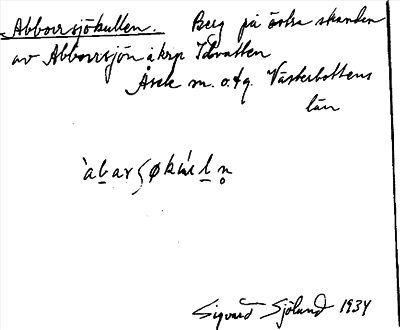 Abborrsjökullen. Berg på östra stranden
av Abborrsjön å krp Idvatten
Åsele sn. o. tg. Västerbottens
län
`abarʃøkɯ́lṇ
Sigvard Sjölund 1934